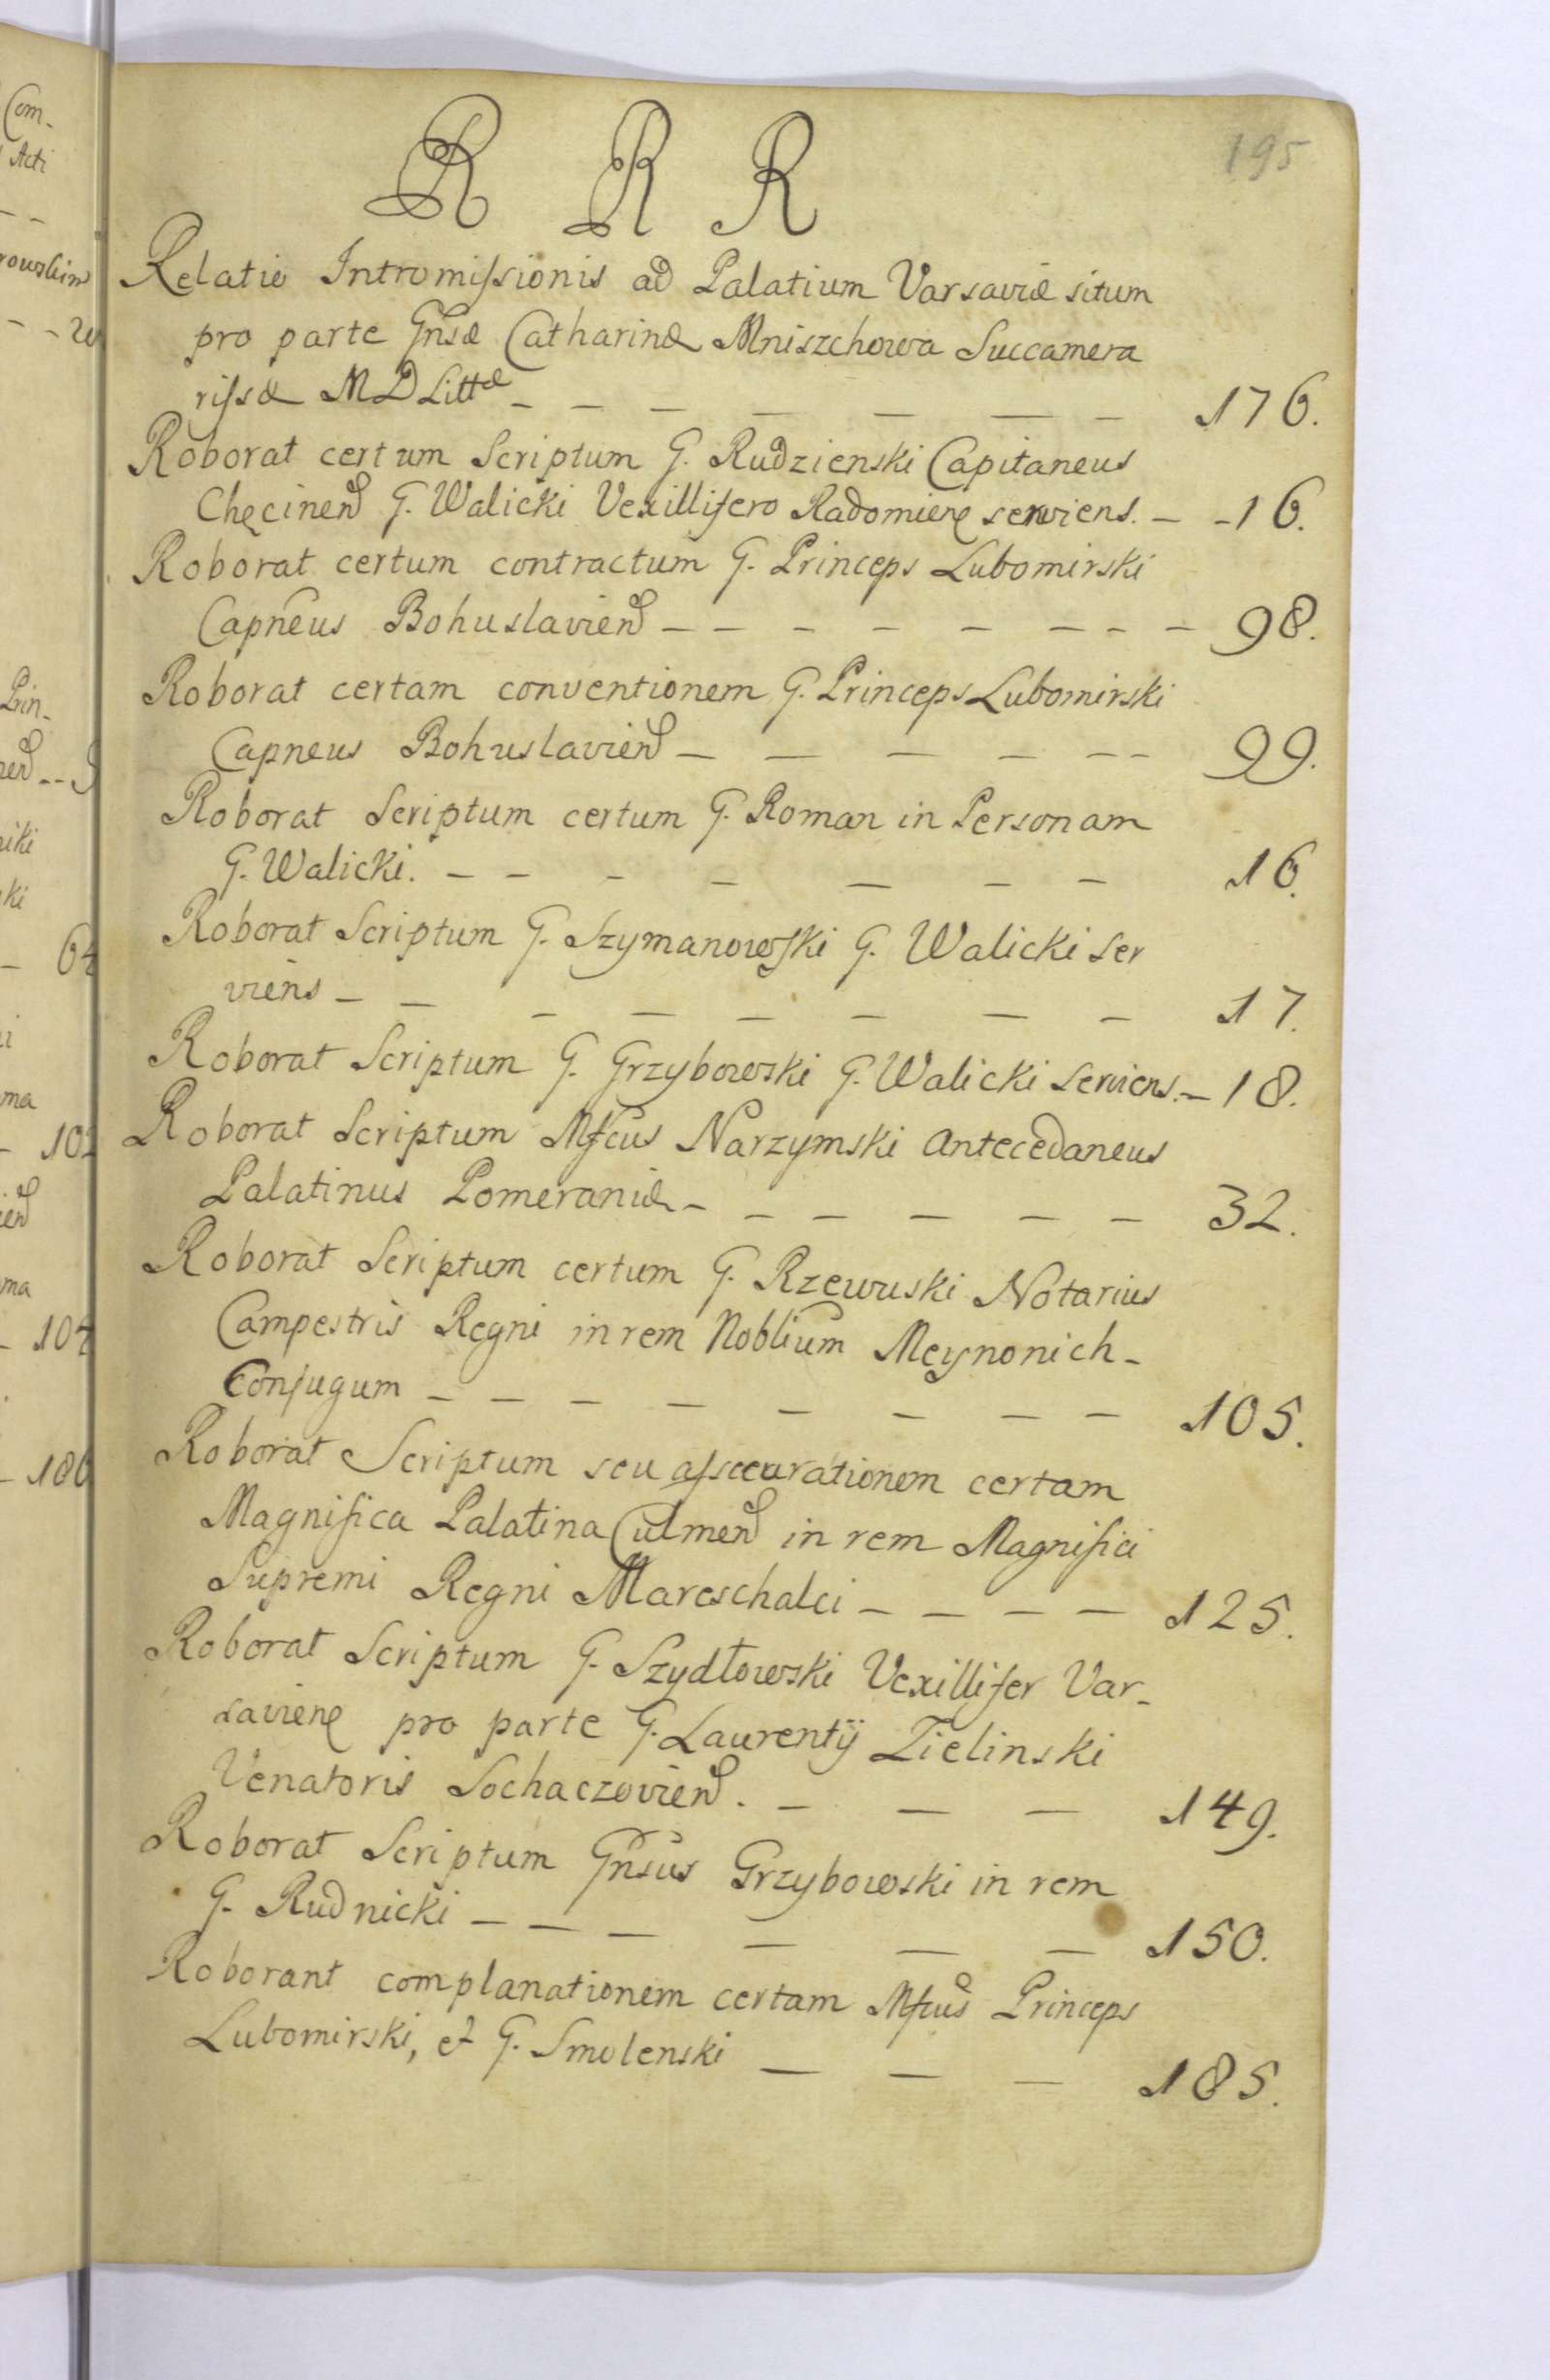 195
R R R
Relatio Intromissionis ad Palatium Varsaviæ situm
pro parte Gnsæ Catharinæ Mniszchowa Succamera
rissæ M D Littæ - - - - - - - 176.
Roborat certum Scriptum G. Rudzienski Capitaneus
Chęcinen G. Walicki Vexillifero Radomien serviens. - - 16.
Roborat certum contractum G. Princeps Lubomirski
Capneus Bohuslavien - - - - - - - - 98.
Roborat certam conventionem G. Princeps Lubomirski
Capneus Bohuslavien - - - - - - 99.
Roborat Scriptum certum G. Roman in Personam
G. Walicki. - - - - - - - 16.
Roborat Scriptum G. Szymanowski G. Walicki ser
viens - - - - - - - - 17.
Roborat Scriptum G. Grzybowski G. Walicki serviens. - 18.
Roborat Scriptum Mfcus Narzymski Antecedaneus
Palatinus Pomeraniæ - - - - - - 32.
Roborat Scriptum certum G. Rzewuski Notarius
Campestris Regni in rem Noblium Meynonich -
Conjugum - - - - - - - - 105.
Roborat Scriptum seu assecurationem certam
Magnifica Palatina Culmen in rem Magnifici
Supremi Regni Mareschalci - - - - 125.
Roborat Scriptum G. Szydłowski Vexillifer Var-
savien pro parte G. Laurentÿ Zielinski
Venatoris Sochaczovien. - - - 149.
Roborat Scriptum Gnsus Grzybowski in rem
G. Rudnicki - - - - - - 150.
Roborant complanationem certam Mfcus Princeps
Lubomirski, et G. Smolenski - - - 185.